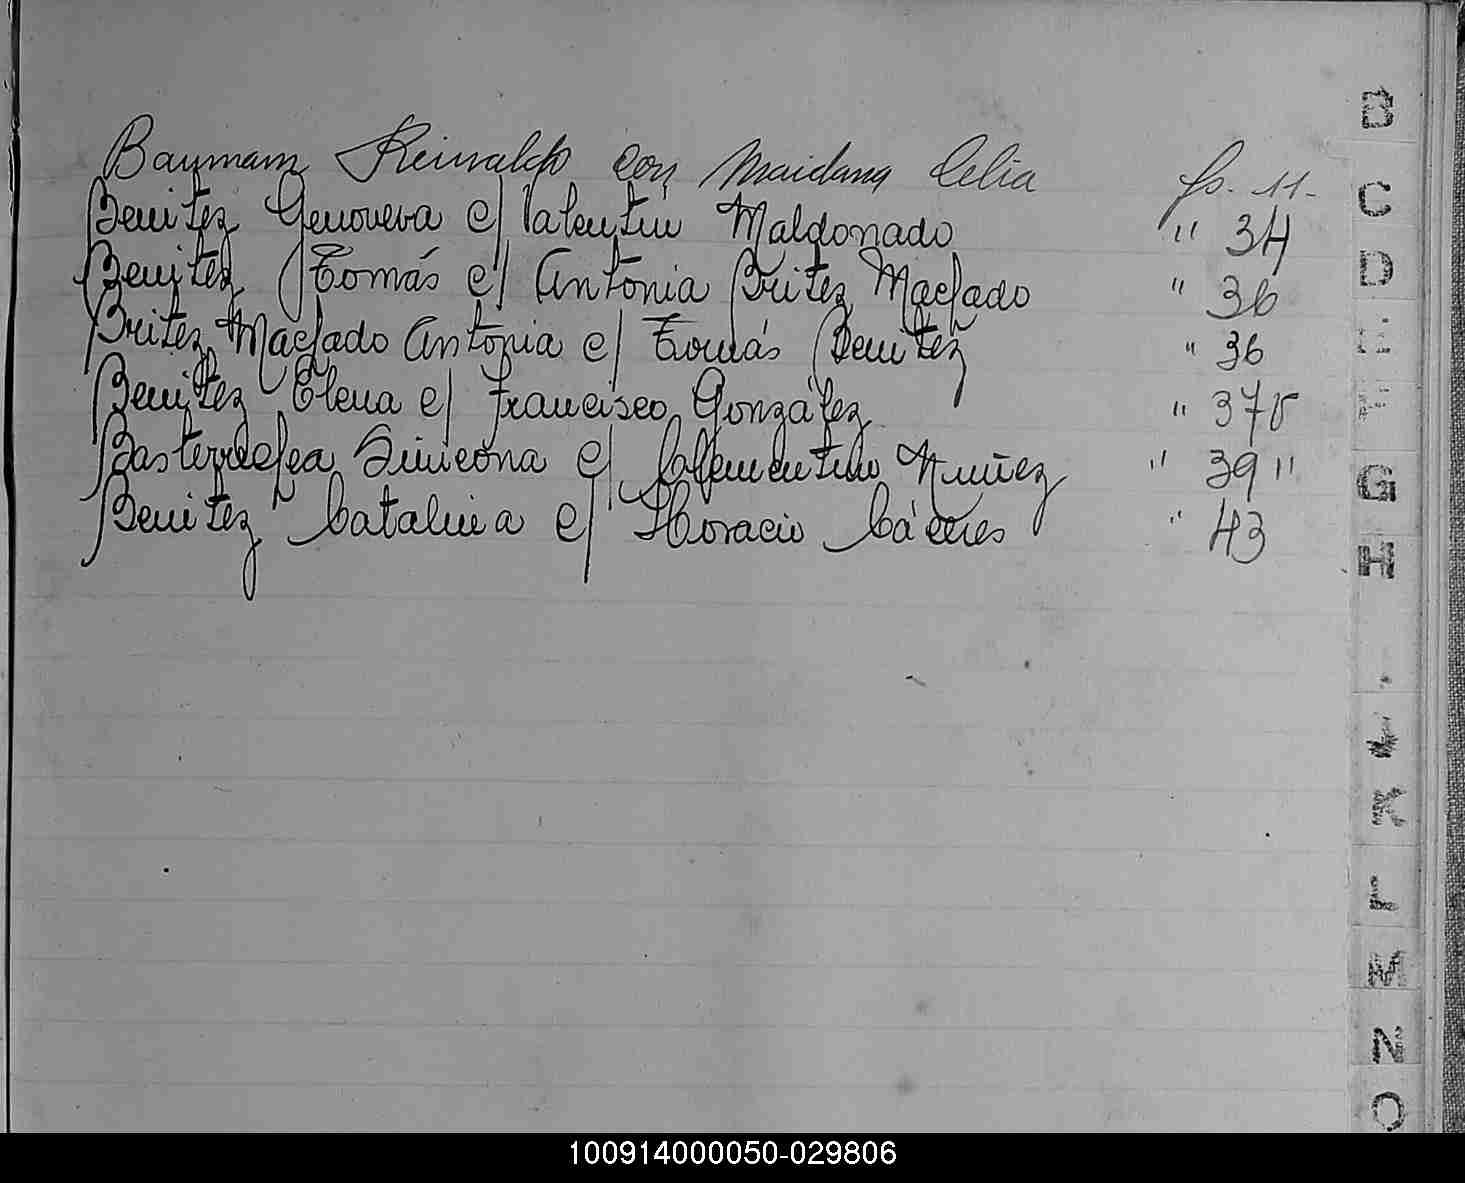 Baumam Reinaldo con Maidana Celia fs. 11-
Benitez Genoveva c/ Valentin Maldonado " 34
Benitez Tomás c/ Antonia Britez Machado " 36
Britez Machado Antonia c/ Tomás Benitez " 36
Benitez Elena c/ Francisco González " 37v
Basterrechea Simeona c/ Clementino Nuñez " 39 "
Benitez Catalina c/ Horacio Cáceres " 43
B
C
D
E
F
G
H
J
K
L
M
N
O
100914000050-029806